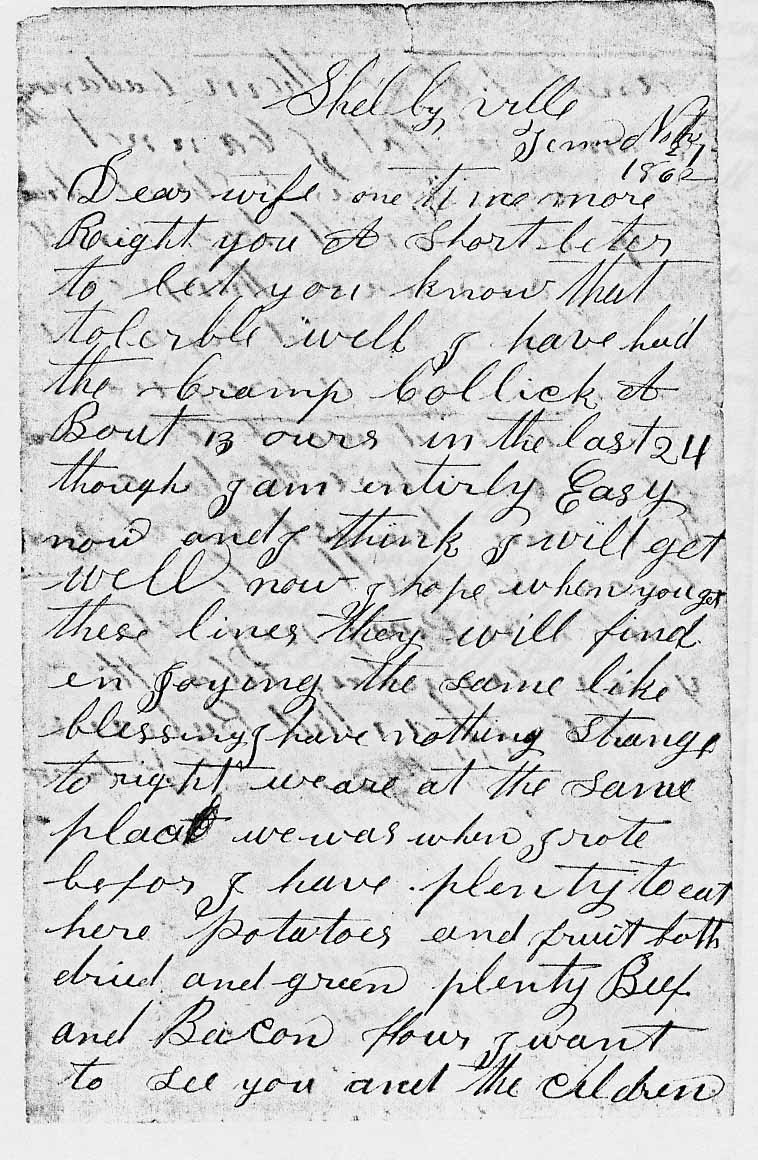 Shelby ville
Tenn Nobr
27
1862
Dear wife one time more
Right you A short leter
to let you know that
tolerble well I have had
the Cramp Collick A
Bout 13 ours in the last 24
though I am entirly Easy
now and I think I will get
well now I hope when you get
these lines they will find
en Joying the same like
blessing I have nothing strange
to right we are at the same
place we was when I rote
befor I have plenty to eat
here potatoes and fruit both
dried and green plenty Beef
and Bacon flour I want
to see you and the Children